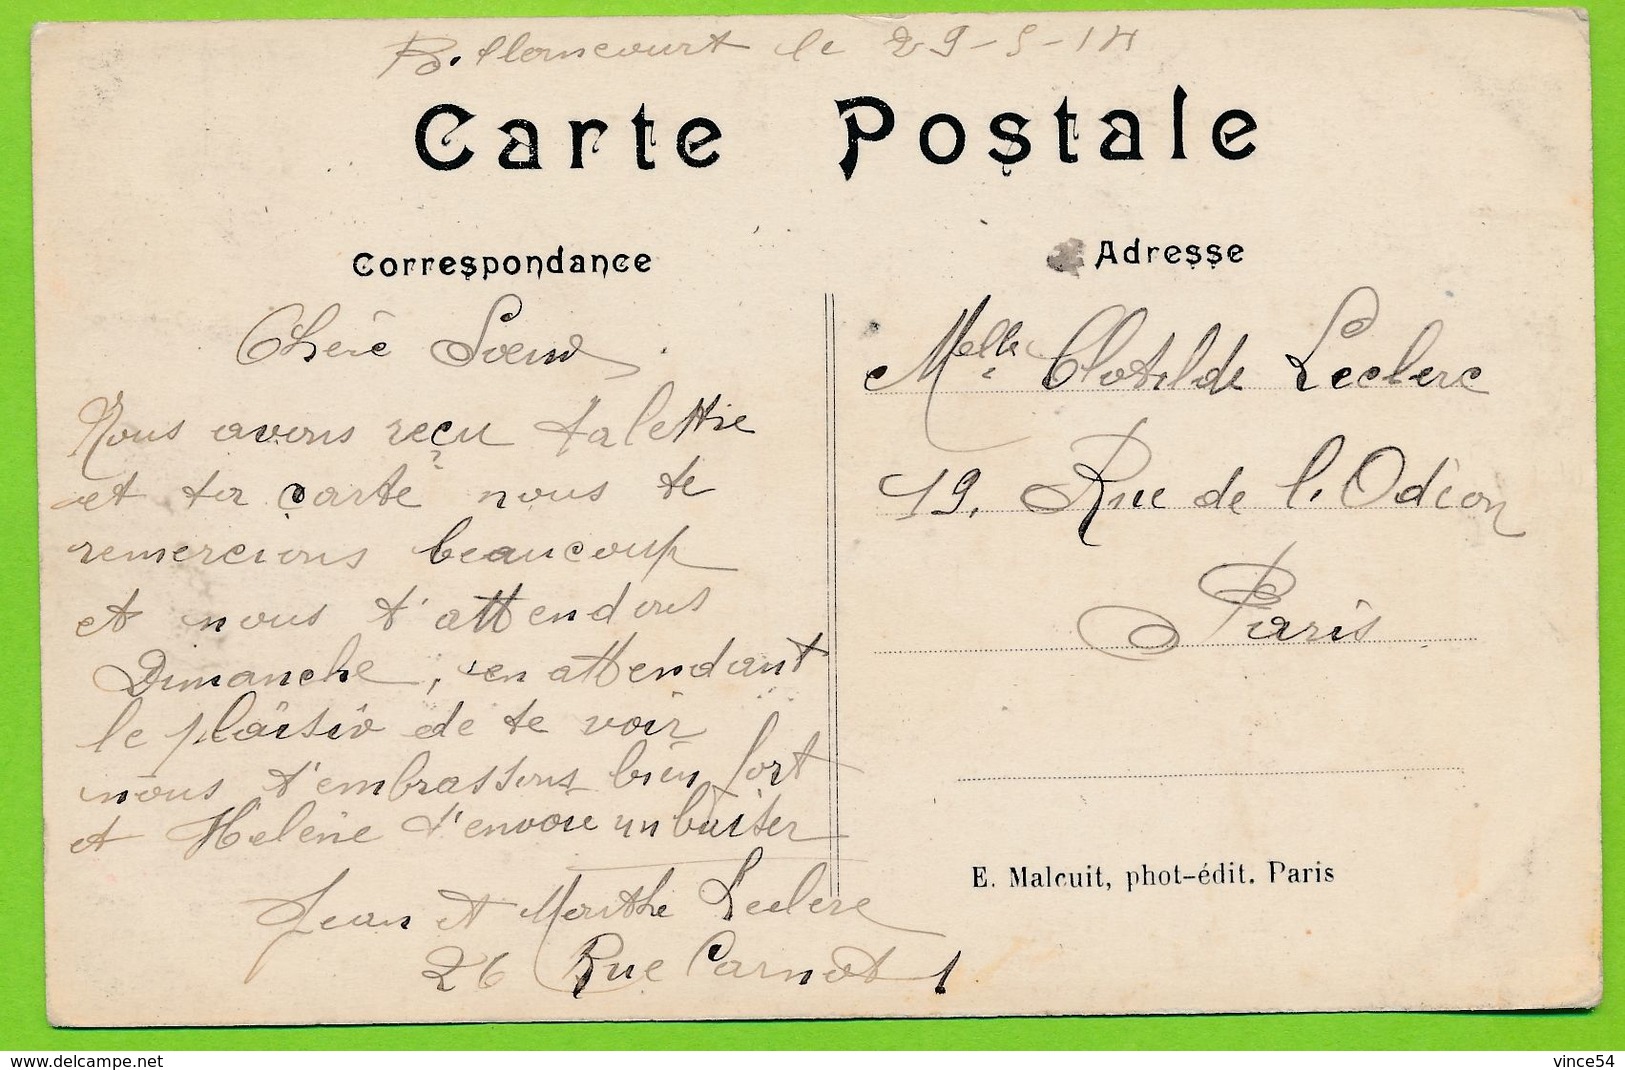 Billancourt le 29-5-14
Carte Postale
Correspondance
Adresse
Chère Soeur
Nous avons reçu ta lettre
et ta carte nous te
remercions beaucoup
et nous t'attendons
Dimanche, en attendant
le plaisir de te voir
nous t'embrassons bien fort
et Helène t'envoie un baiser
Jean et Marthe Leclerc
26 Rue Carnot
Melle Clotilde Leclerc
19, Rue de l'Odéon
Paris
E. Malcuit, phot-édit. Paris
www.delcampe.net
vince54